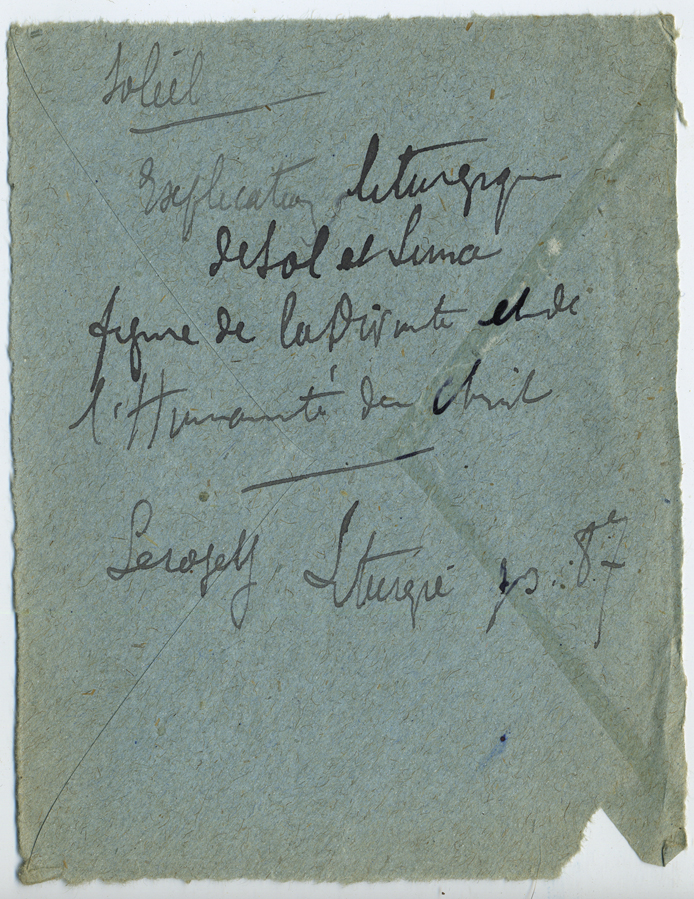 Soleil
Explication liturgique
de Sol et Luna
figure de la Divinité et de
l'Humanité du Christ
Liturgie p. 87